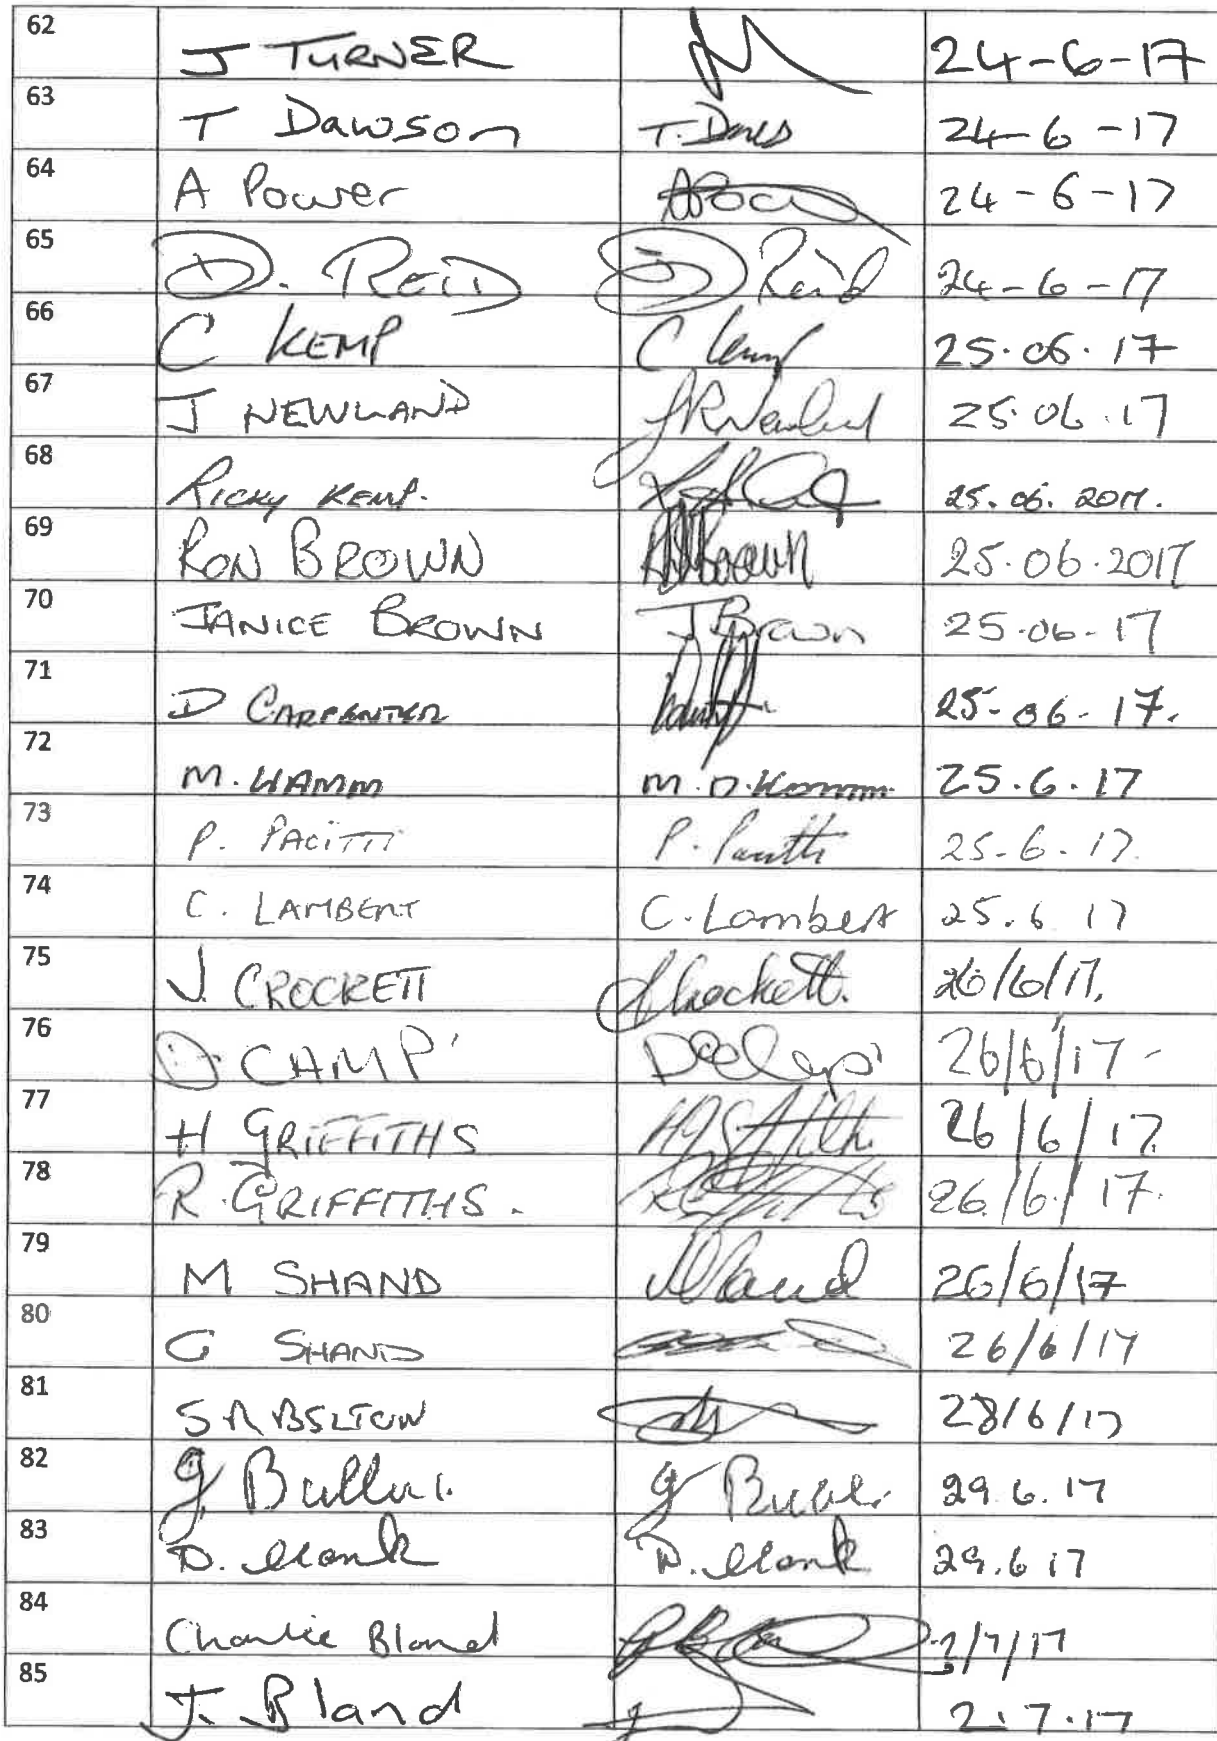 62 J TURNER 24-6-17
63 T Dawson T. Daws 24-6-17
64 A Power 24-6-17
65 D. REID D Reid 24-6-17
66 C KEMP C Kemp 25.06.17
67 J NEWLAND JRNewland 25.06.17
68 RICKY KEMP. 25.06.2017.
69 RON BROWN Brown 25.06.2017
70 JANICE BROWN J Brown 25.06-17
71 D CARPENTER 25-06-17.
72 M. HAMM 25.6.17
73 P. PACITTI P. Pacitti 25-6-17.
74 C. LAMBERT C. Lambert 25.6 17
75 J. CROCKETT J Crockett. 26/6/17.
76 D. CAMP 26/6/17
77 H GRIFFITHS 26/6/17.
78 R. GRIFFITHS. 26/6/17.
79 M SHAND 26/6/17
80 G SHAND 26/6/17
81 28/6/17
82 29.6.17
83 D. Monk D. Monk 29.6 17
84 Charlie Bland /7/17
85 J. Bland 2.7.17